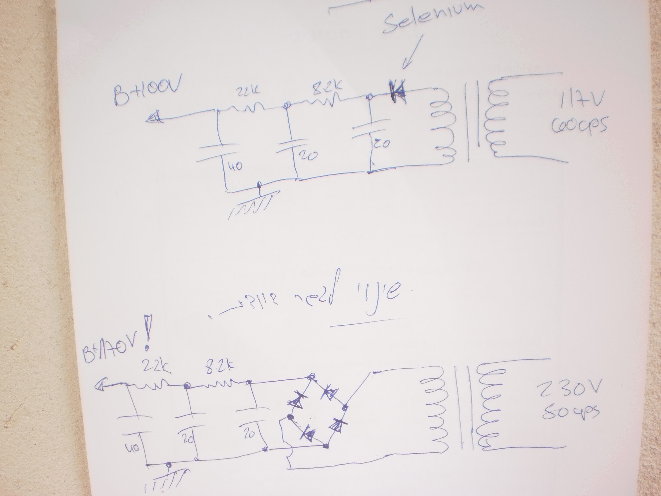 Selenium
B+100V
22k
82k
40
20
20
117V
60cps
שינוי לגשר
B+170V!
22k
82k
40
20
20
230V
50cps